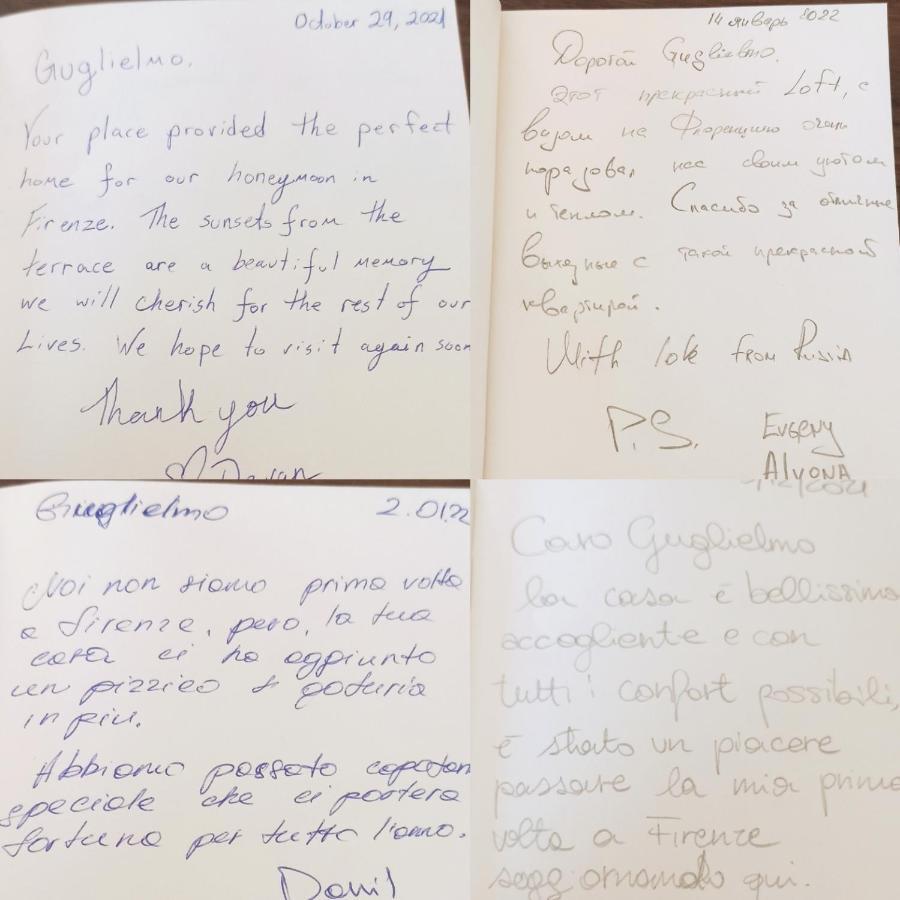 October 29, 2021
Guglielmo,
Your place provided the perfect
home for our honeymoon in
Firenze. The sunsets from the
terrace are a beautiful memory
we will cherish for the rest of our
Lives. We hope to visit again soon
Thank you
14 январь 2022
Дорогой Guglielmo.
Этот прекрасный Loft, с
видом на Флоренцию очень
порадовал нас своим уютом
и теплом. Спасибо за отличные
выходные с такой прекрасной
квартирой.
With love from Russia
P.S.
Evgeny
Alyona
Guglielmo
2.01.22
Noi non siamo prima volta
a Firenze, pero, la tua
casa ci ha aggiunto
un pizzico di goduria
in piu.
Abbiamo passato capodann
speciale che ci portera
fortuna per tutto l'anno.
Danil
Caro Guglielmo
la casa è bellissima
accogliente e con
tutti i confort possibili,
è stato un piacere
passare la mia prima
volta a Firenze
soggiornando qui.